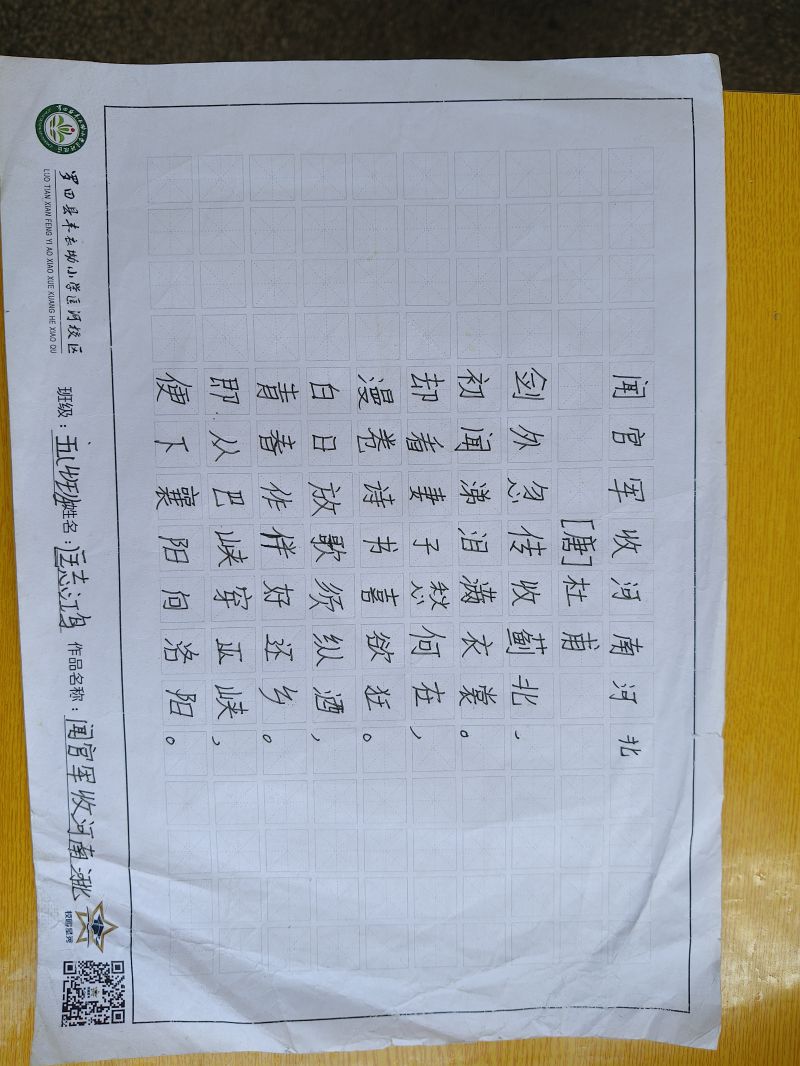 闻官军收河南河北
[唐]杜甫
剑外忽传收蓟北,
初闻涕泪满衣裳。
却看妻子愁何在,
漫卷诗书喜欲狂。
白日放歌须纵酒,
青春作伴好还乡。
即从巴峡穿巫峡,
便下襄阳向洛阳。
LUO TIAN XIAN FENG YI AO XIAO XUE KUANG HE XIAO QU
班级:五(5)班 姓名: 作品名称:闻官军收河南河北